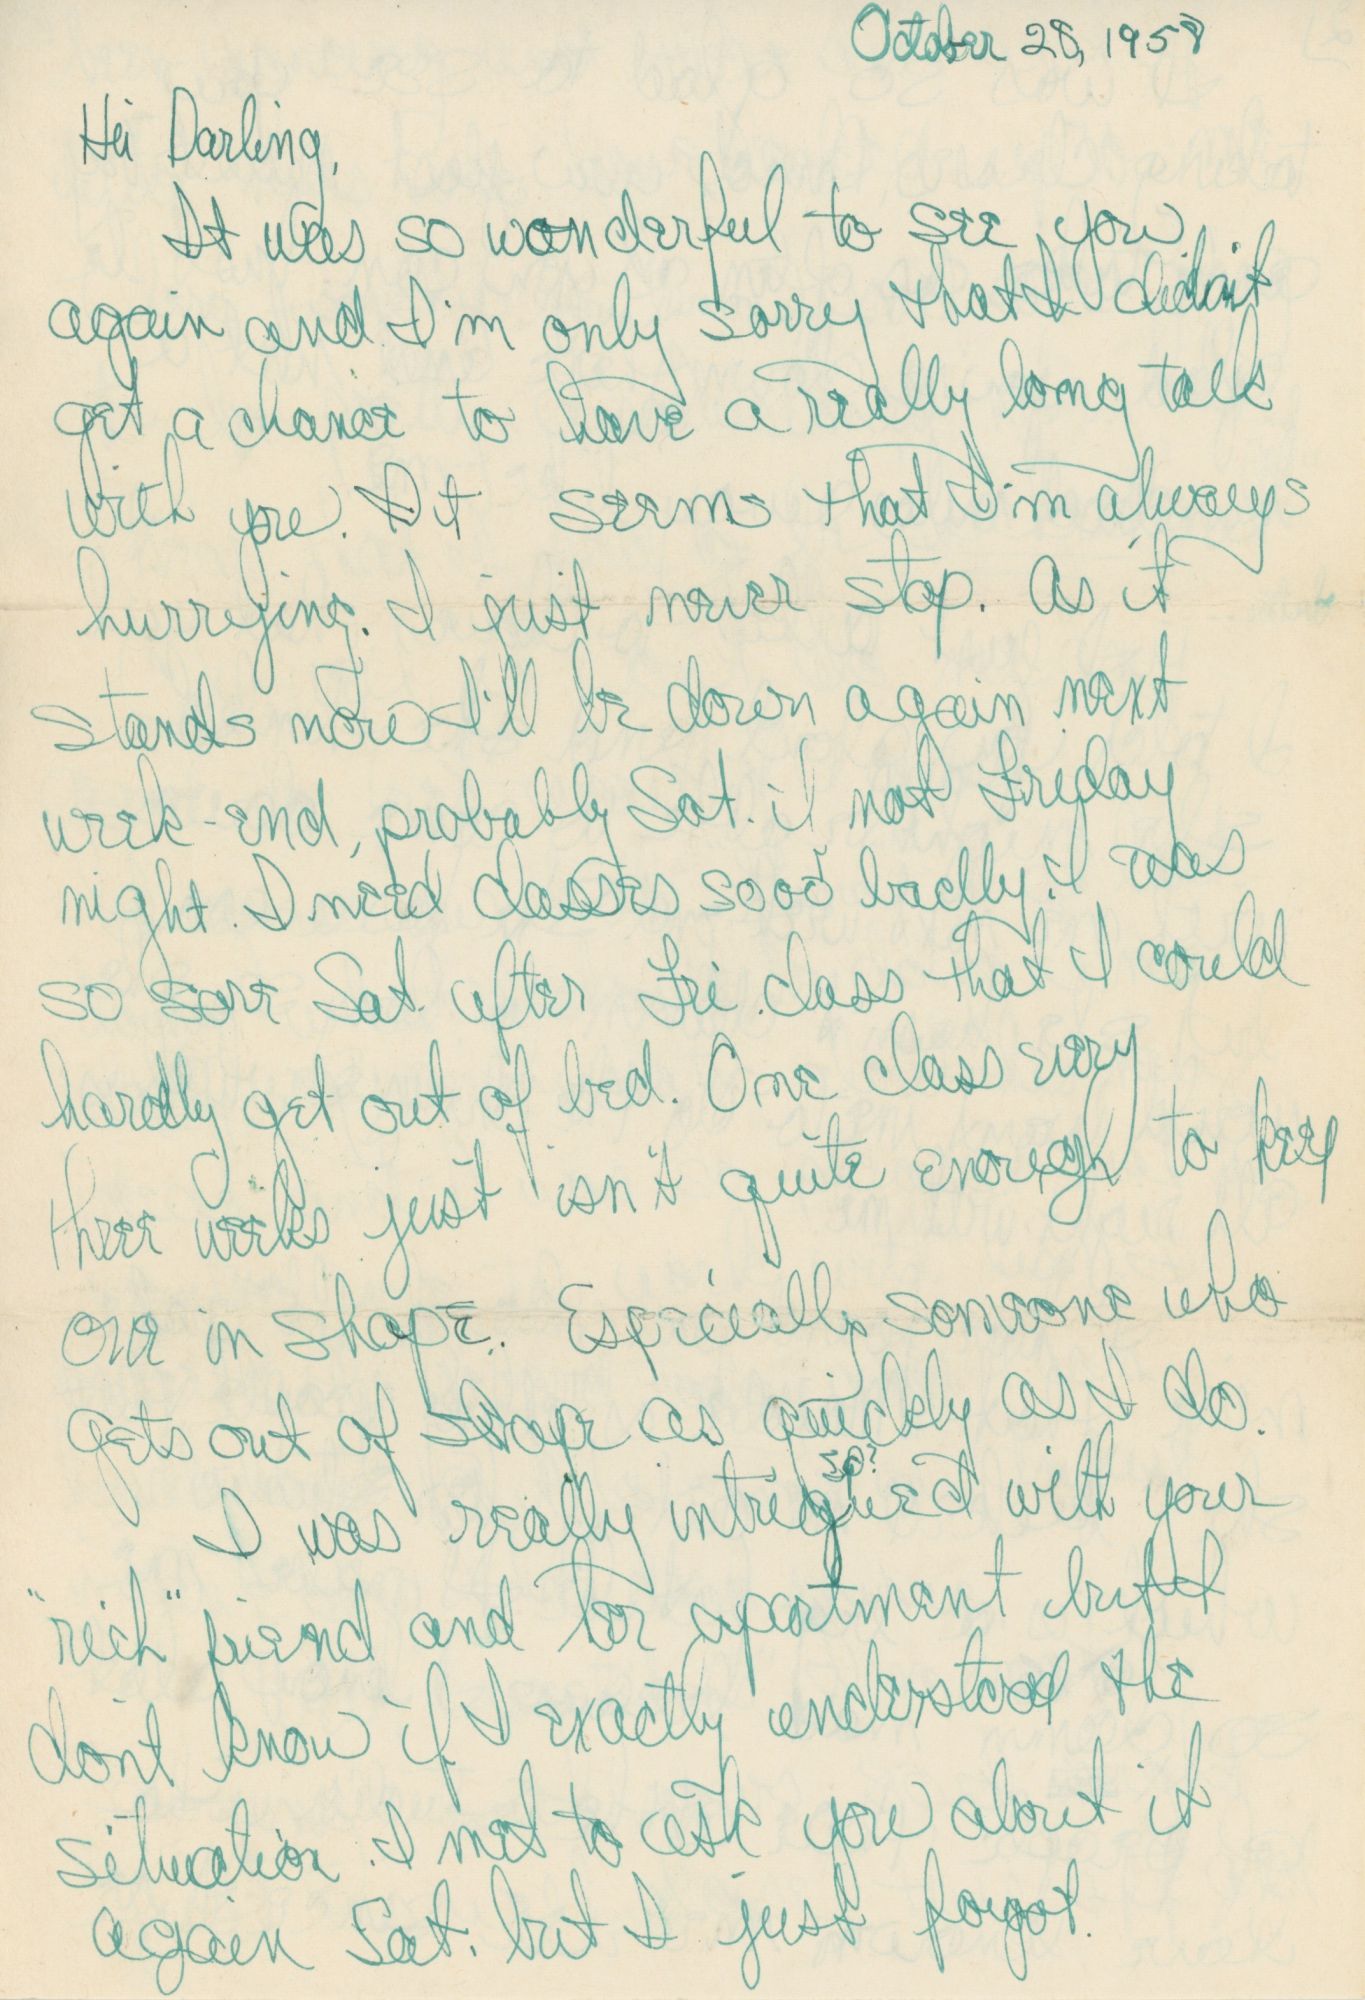 October 28, 1958
Hi Darling,
It was so wonderful to see you
again and I'm only sorry that I didn't
get a chance to have a really long talk
with you. It seems that I'm always
hurrying. I just never stop. As it
stands now I'll be down again next
week-end, probably Sat. if not Friday
night. I need classes sooo badly. I was
so sore Sat. after Fri. class that I could
hardly get out of bed. One class every
three weeks just isn't quite enough to keep
one in shape. Especially someone who
gets out of shape as quickly as I do.
sp?
I was really intrigued with your
"rich" friend and her apartment but I
don't know if I exactly understood the
situation. I met to ask you about it
again Sat. but I just forgot.